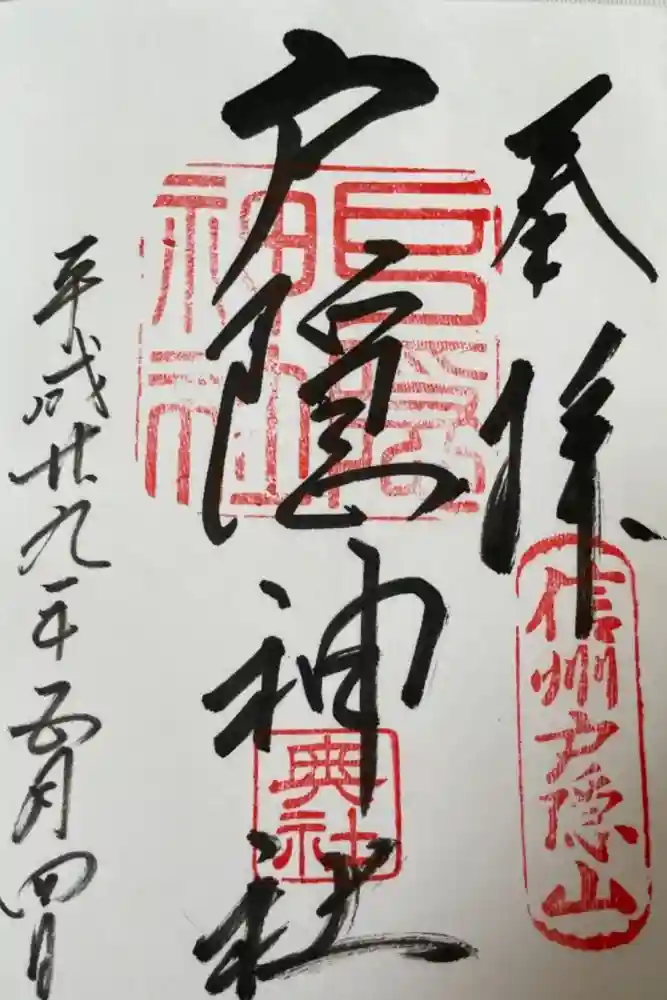 奉拝
信州戸隠山
戸隠神社
戸隠
神社
奥社
平成廿九年五月四日